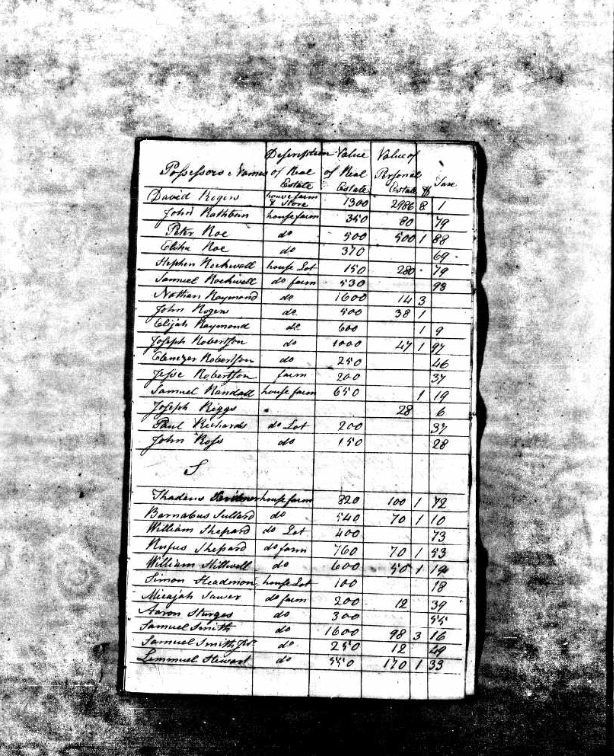 Possessors Names | Description of Real Estate | Value of Real Estate | Value of Personal Estate | $ | Tax
David Rogers | house farm & Store | 1300 | 2986 | 8 | 1
John Rathbun | house farm | 350 | 80 | | 79
Peter Roe | do | 500 | 500 | 1 | 88
Elisha Roe | do | 370 | | | 69
Stephen Rockwell | house Lot | 150 | 280 | | 79
Samuel Rockwell | do farm | 530 | | | 98
Nathan Raymond | do | 1600 | 14 | 3
John Rogers | do | 500 | 38 | 1
Elijah Raymond | do | 600 | | 1 | 9
Joseph Robertson | do | 1000 | 47 | 1 | 97
Ebenezer Robertson | do | 250 | | | 46
Jesse Robertson | farm | 200 | | | 37
Samuel Randall | house farm | 650 | | 1 | 19
Joseph Riggs | | | 28 | | 6
Paul Richards | do Lot | 200 | | | 37
John Ross | do | 150 | | | 28
S
Thadeus | house farm | 820 | 100 | 1 | 72
Barnabus | do | 540 | 70 | 1 | 10
William Shepard | do Lot | 400 | | | 73
Rufus Shepard | do farm | 760 | 70 | 1 | 53
William Stillwell | do | 600 | 50 | 1 | 19
Simon | house Lot | 100 | | | 18
Micajah | do farm | 200 | 12 | | 39
Aaron Sturges | do | 300 | | | 55
Samuel Smith | do | 1600 | 98 | 3 | 16
Samuel Smith Jr. | do | 250 | 12 | | 49
Lemmuel Stewart | do | 550 | 170 | 1 | 33